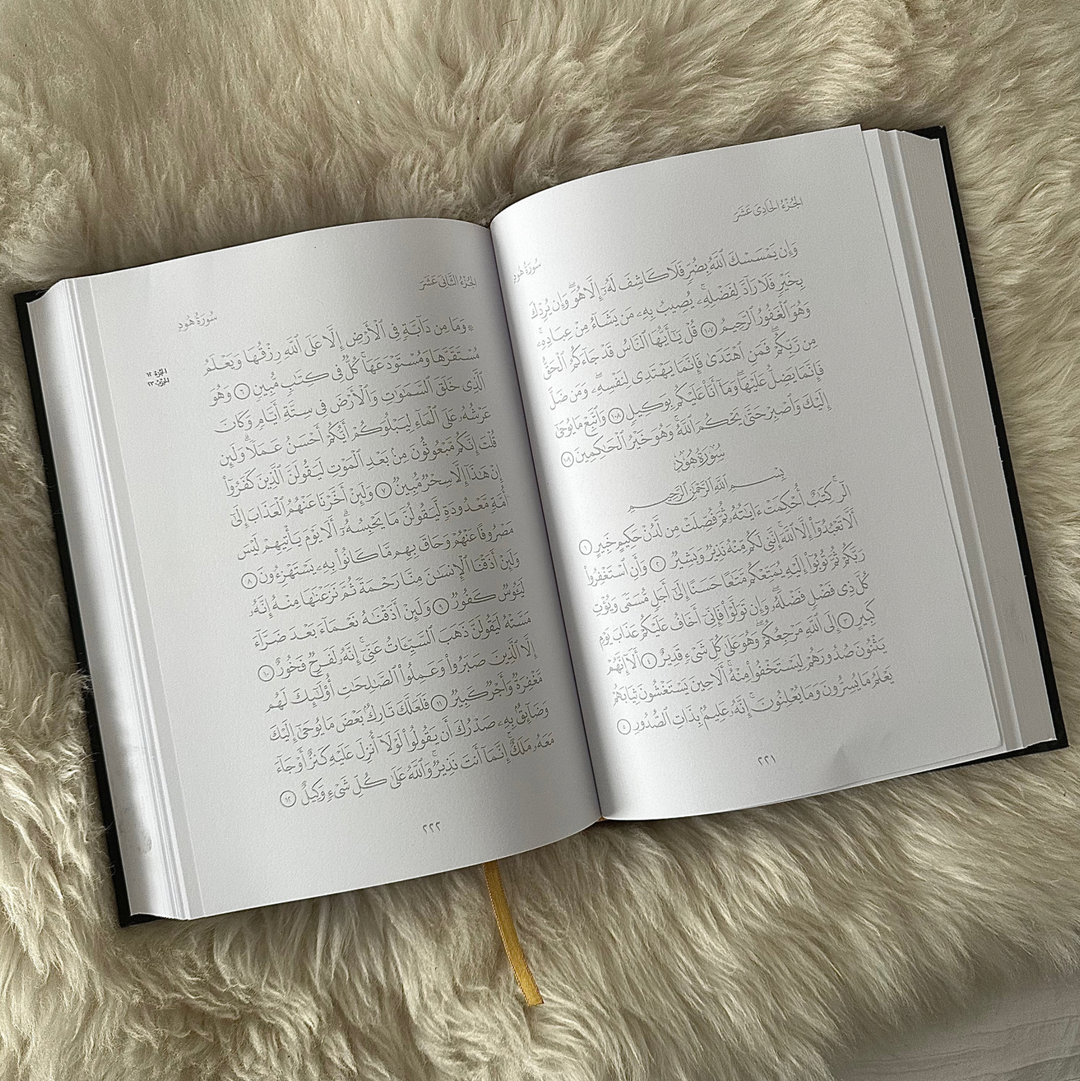 الجُزْءُ الحَادِى عَشَرَ
سُورَةُ هُودٍ
وَإِن يَمْسَسْكَ ٱللَّهُ بِضُرٍّ فَلَا كَاشِفَ لَهُۥٓ إِلَّا هُوَۖ وَإِن يُرِدْكَ
بِخَيْرٍ فَلَا رَآدَّ لِفَضْلِهِۦۚ يُصِيبُ بِهِۦ مَن يَشَآءُ مِنْ عِبَادِهِۦۚ
وَهُوَ ٱلْغَفُورُ ٱلرَّحِيمُ ١٠٧ قُلْ يَٰٓأَيُّهَا ٱلنَّاسُ قَدْ جَآءَكُمُ ٱلْحَقُّ
مِن رَّبِّكُمْۖ فَمَنِ ٱهْتَدَىٰ فَإِنَّمَا يَهْتَدِى لِنَفْسِهِۦۖ وَمَن ضَلَّ
فَإِنَّمَا يَضِلُّ عَلَيْهَاۖ وَمَآ أَنَا۠ عَلَيْكُم بِوَكِيلٍ ١٠٨ وَٱتَّبِعْ مَا يُوحَىٰٓ
إِلَيْكَ وَٱصْبِرْ حَتَّىٰ يَحْكُمَ ٱللَّهُۚ وَهُوَ خَيْرُ ٱلْحَٰكِمِينَ ١٠٩
سُورَةُ هُودٍ
بِسْمِ ٱللَّهِ ٱلرَّحْمَٰنِ ٱلرَّحِيمِ
الٓرۚ كِتَٰبٌ أُحْكِمَتْ ءَايَٰتُهُۥ ثُمَّ فُصِّلَتْ مِن لَّدُنْ حَكِيمٍ خَبِيرٍ ١
أَلَّا تَعْبُدُوٓا۟ إِلَّا ٱللَّهَۚ إِنَّنِى لَكُم مِّنْهُ نَذِيرٌ وَبَشِيرٌ ٢ وَأَنِ ٱسْتَغْفِرُوا۟
رَبَّكُمْ ثُمَّ تُوبُوٓا۟ إِلَيْهِ يُمَتِّعْكُم مَّتَٰعًا حَسَنًا إِلَىٰٓ أَجَلٍ مُّسَمًّى وَيُؤْتِ
كُلَّ ذِى فَضْلٍ فَضْلَهُۥۖ وَإِن تَوَلَّوْا۟ فَإِنِّىٓ أَخَافُ عَلَيْكُمْ عَذَابَ يَوْمٍ
كَبِيرٍ ٣ إِلَى ٱللَّهِ مَرْجِعُكُمْۖ وَهُوَ عَلَىٰ كُلِّ شَىْءٍ قَدِيرٌ ٤ أَلَآ إِنَّهُمْ
يَثْنُونَ صُدُورَهُمْ لِيَسْتَخْفُوا۟ مِنْهُۚ أَلَا حِينَ يَسْتَغْشُونَ ثِيَابَهُمْ
يَعْلَمُ مَا يُسِرُّونَ وَمَا يُعْلِنُونَۚ إِنَّهُۥ عَلِيمٌۢ بِذَاتِ ٱلصُّدُورِ ٥
٢٢١
الجُزْءُ الثَّانِى عَشَرَ
سُورَةُ هُودٍ
۞ وَمَا مِن دَآبَّةٍ فِى ٱلْأَرْضِ إِلَّا عَلَى ٱللَّهِ رِزْقُهَا وَيَعْلَمُ
مُسْتَقَرَّهَا وَمُسْتَوْدَعَهَاۚ كُلٌّ فِى كِتَٰبٍ مُّبِينٍ ٦ وَهُوَ
ٱلَّذِى خَلَقَ ٱلسَّمَٰوَٰتِ وَٱلْأَرْضَ فِى سِتَّةِ أَيَّامٍ وَكَانَ
عَرْشُهُۥ عَلَى ٱلْمَآءِ لِيَبْلُوَكُمْ أَيُّكُمْ أَحْسَنُ عَمَلًاۗ وَلَئِن
قُلْتَ إِنَّكُم مَّبْعُوثُونَ مِنۢ بَعْدِ ٱلْمَوْتِ لَيَقُولَنَّ ٱلَّذِينَ كَفَرُوٓا۟
إِنْ هَٰذَآ إِلَّا سِحْرٌ مُّبِينٌ ٧ وَلَئِنْ أَخَّرْنَا عَنْهُمُ ٱلْعَذَابَ إِلَىٰٓ
أُمَّةٍ مَّعْدُودَةٍ لَّيَقُولُنَّ مَا يَحْبِسُهُۥٓۗ أَلَا يَوْمَ يَأْتِيهِمْ لَيْسَ
مَصْرُوفًا عَنْهُمْ وَحَاقَ بِهِم مَّا كَانُوا۟ بِهِۦ يَسْتَهْزِءُونَ ٨
وَلَئِنْ أَذَقْنَا ٱلْإِنسَٰنَ مِنَّا رَحْمَةً ثُمَّ نَزَعْنَٰهَا مِنْهُ إِنَّهُۥ
لَيَـُٔوسٌ كَفُورٌ ٩ وَلَئِنْ أَذَقْنَٰهُ نَعْمَآءَ بَعْدَ ضَرَّآءَ
مَسَّتْهُ لَيَقُولَنَّ ذَهَبَ ٱلسَّيِّـَٔاتُ عَنِّىٓۚ إِنَّهُۥ لَفَرِحٌ فَخُورٌ ١٠
إِلَّا ٱلَّذِينَ صَبَرُوا۟ وَعَمِلُوا۟ ٱلصَّٰلِحَٰتِ أُو۟لَٰٓئِكَ لَهُم
مَّغْفِرَةٌ وَأَجْرٌ كَبِيرٌ ١١ فَلَعَلَّكَ تَارِكٌۢ بَعْضَ مَا يُوحَىٰٓ إِلَيْكَ
وَضَآئِقٌۢ بِهِۦ صَدْرُكَ أَن يَقُولُوا۟ لَوْلَآ أُنزِلَ عَلَيْهِ كَنزٌ أَوْ جَآءَ
مَعَهُۥ مَلَكٌۚ إِنَّمَآ أَنتَ نَذِيرٌۚ وَٱللَّهُ عَلَىٰ كُلِّ شَىْءٍ وَكِيلٌ ١٢
٢٢٢